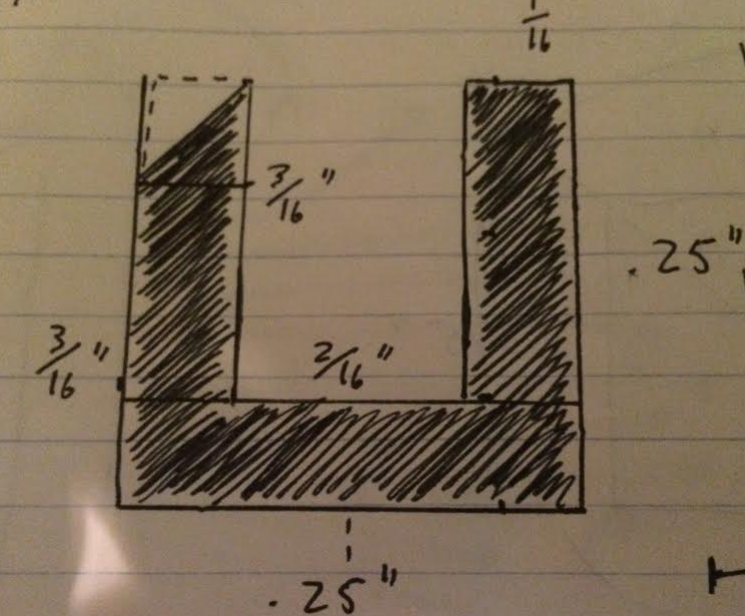 1/16
3/16"
.25"
3/16"
2/16"
.25"